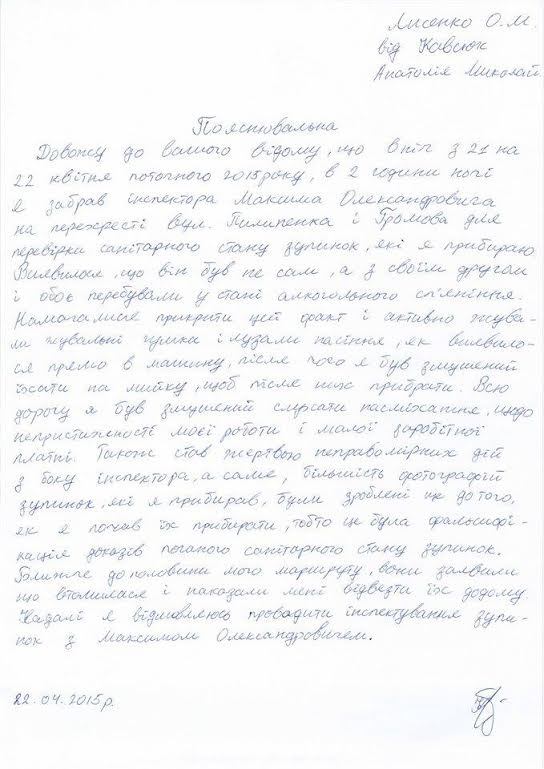 Лисенко О.М.
від Кавсюк
Анатолія Миколай
Пояснювальна
Довожу до вашого відому, що в ніч з 21 на
22 квітня поточного 2015 року, в 2 години ночі
я забрав інспектора Максима Олександровича
на перехресті вул. Пилипенка і Громова для
перевірки санітарного стану зупинок, які я прибираю
Виявилося, що він був не сам, а з своїм другом
і обоє перебували у стані алкогольного сп'яніння.
Намагалися прикрити цей факт і активно жува-
ли жувальні гумки і лузали насіння, як виявило-
ся прямо в машину, після чого я був змушений
їхати на мийку, щоб після них прибрати. Всю
дорогу я був змушений слухати насміхання, щодо
непристижності моєї роботи і малої заробітної
платні. Також став жертвою неправомірних дій
з боку інспектора, а саме, більшість фотографій
зупинок, які я прибирав, були зроблені ще до того,
як я почав їх прибирати, тобто це була фальсифі-
кація доказів поганого санітарного стану зупинок.
Ближче до половини мого маршруту, вони заявили
що втомилися і наказали мені відвезти їх додому.
Надалі я відмовляюсь проводити інспектування зупи-
нок з Максимом Олександровичем.
22.04.2015р.